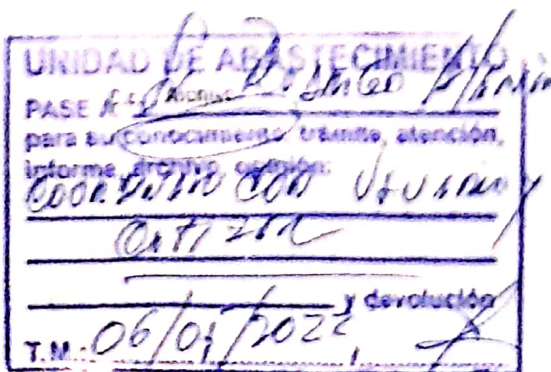 UNIDAD DE ABASTECIMIENTO
PASE A:
para su conocimiento, trámite, atención,
informe, archivo, opinión:
Coordinar con Usuario y
y devolución
T.M.: 06/01/2022